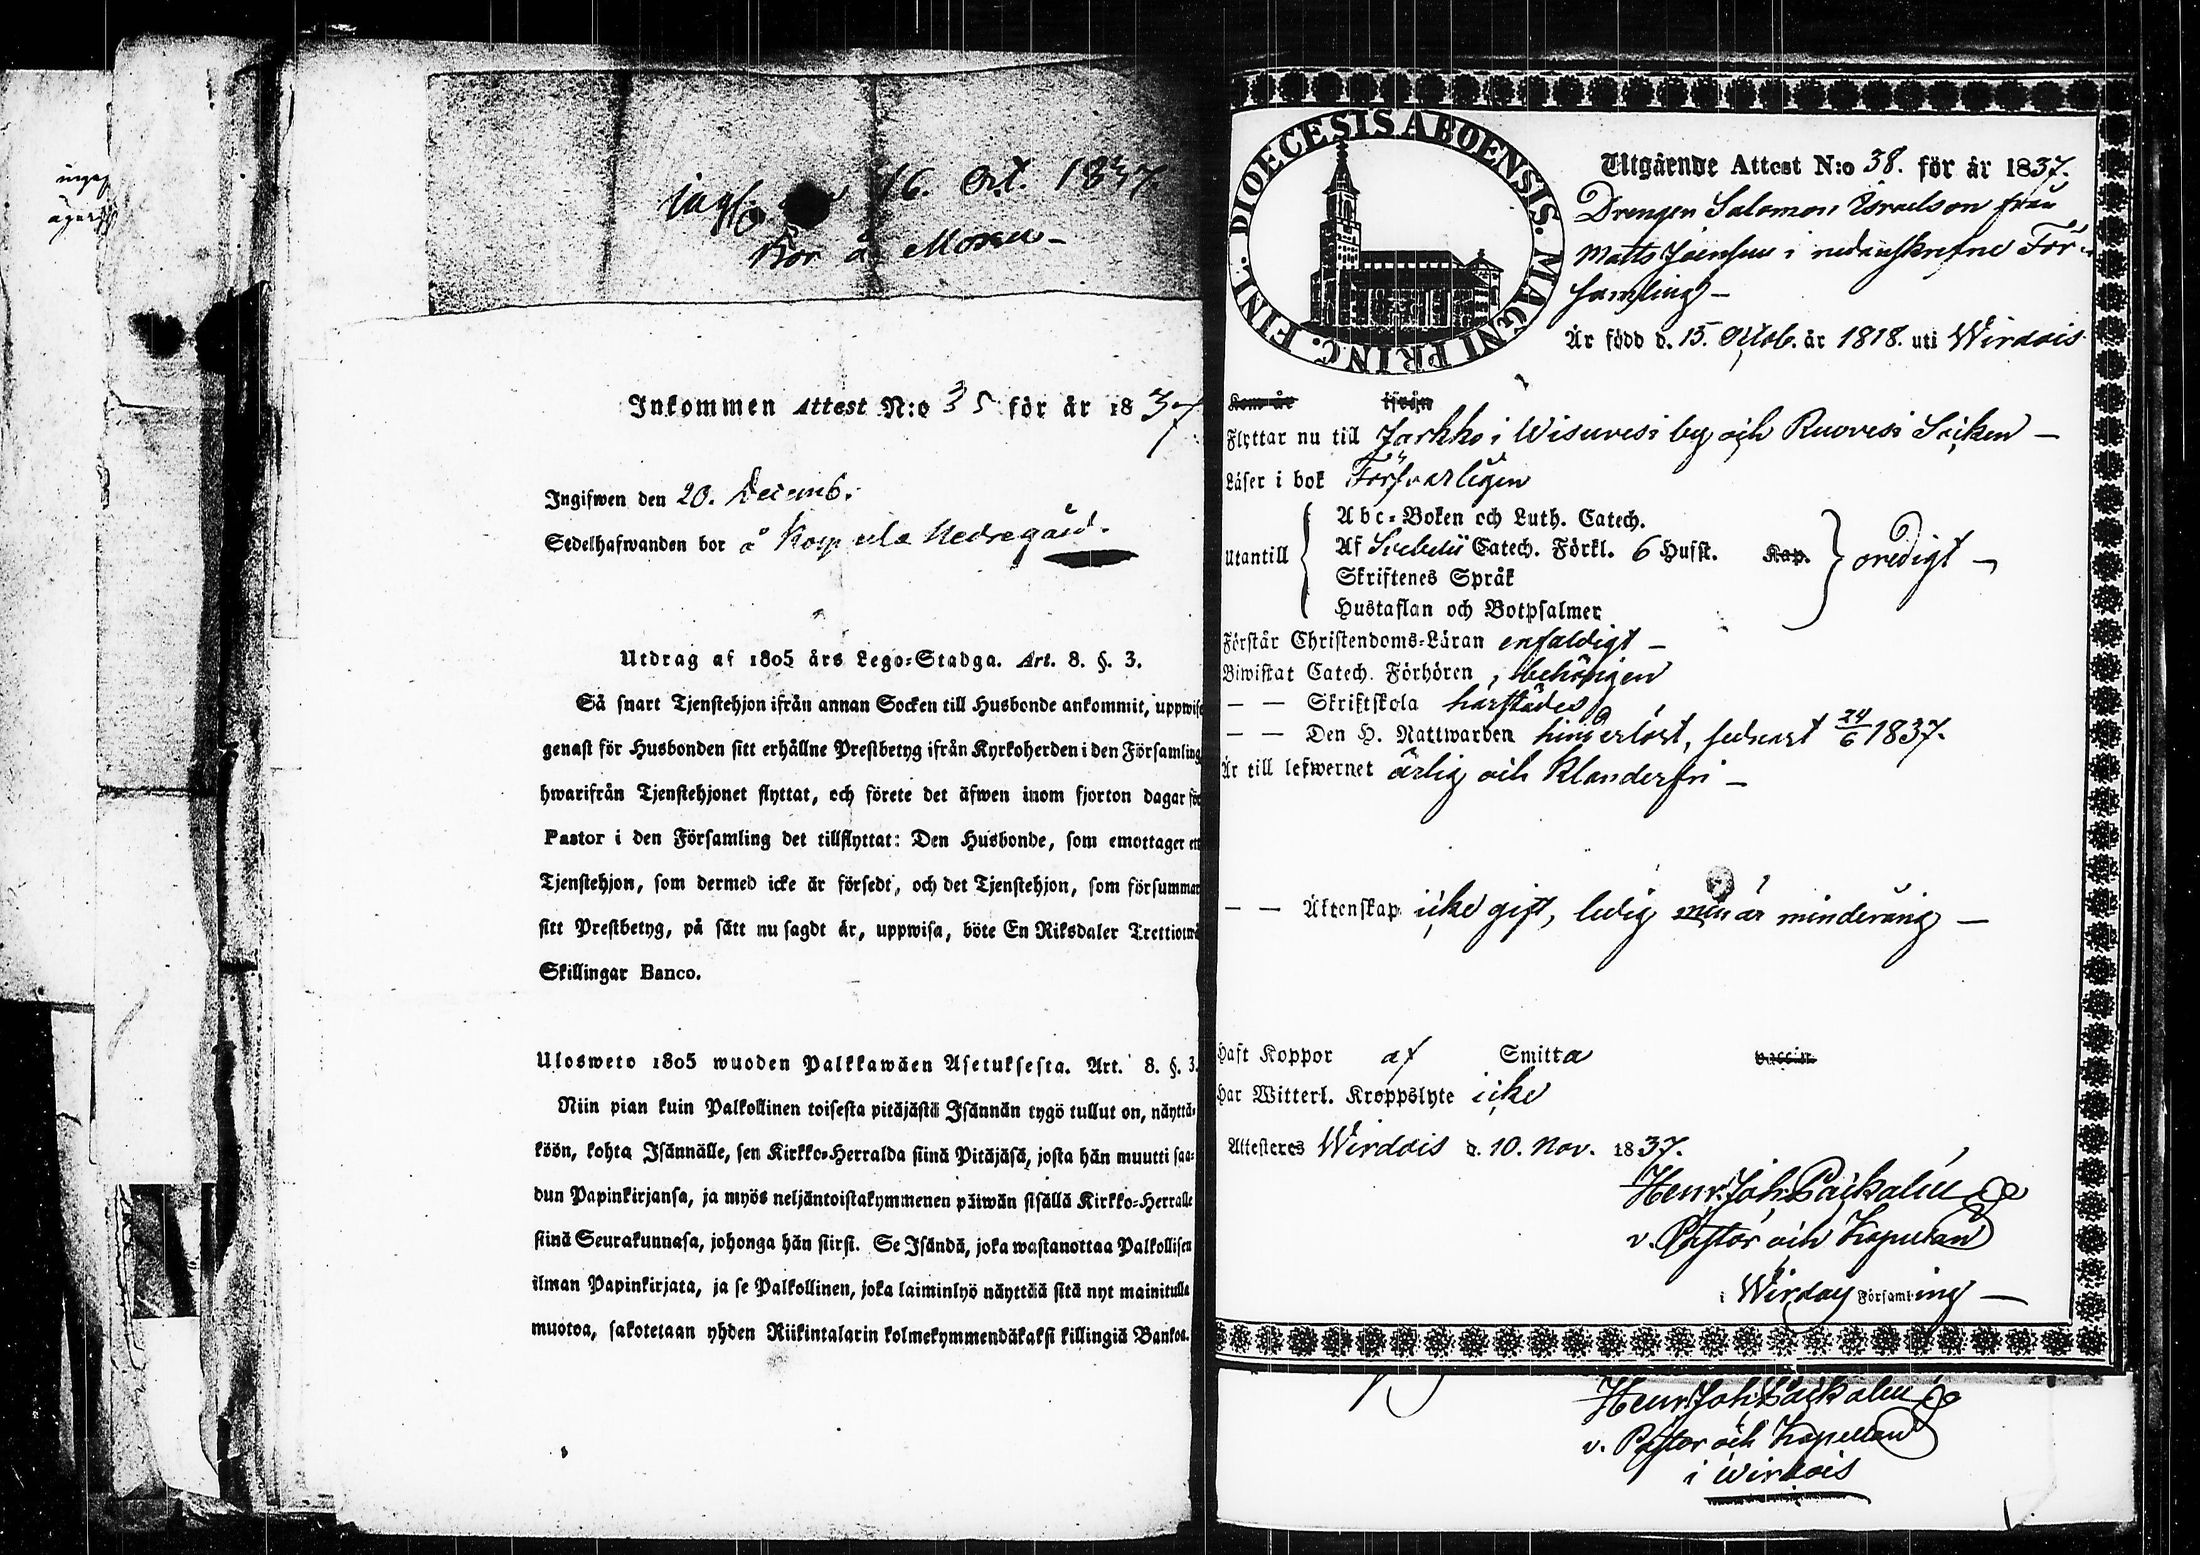 16. Oct. 1837.
Bor å
Inkommen Attest N:o 35 för år 1837
Ingifwen den 20. Decemb.
Sedelhafwanden bor å Nedregård.
Utdrag af 1805 års Lego-Stadga. Art. 8. §. 3.
Så snart Tjenstehjon ifrån annan Socken till Husbonde ankommit, uppwise
genast för Husbonden sitt erhållne Prestbetyg ifrån Kyrkoherden i den Församling
hwarifrån Tjenstehjonet flyttat, och förete det äfwen inom fjorton dagar för
Pastor i den Församling det tillflyttat: Den Husbonde, som emottager ett
Tjenstehjon, som dermed icke är försedt, och det Tjenstehjon, som försummar
sitt Prestbetyg, på sätt nu sagdt är, uppwisa, böte En Riksdaler Trettiotwå
Skillingar Banco.
Ulosweto 1805 wuoden Palkkawäen Asetuksesta. Art. 8. §. 3.
Niin pian kuin Palkollinen toisesta pitäjästä Isännän tygö tullut on, näyttä-
köön, kohta Isännälle, sen Kirkko-Herralda siinä Pitäjäsä, josta hän muutti saa-
dun Papinkirjansa, ja myös neljäntoistakymmenen päiwän sisällä Kirkko-Herralle
siinä Seurakunnasa, johonga hän siirsi. Se Isändä, joka wastanottaa Palkollisen
ilman Papinkirjata, ja se Palkollinen, joka laiminlyö näyttää sitä nyt mainitulla
muotoa, sakotetaan yhden Riikintalarin kolmekymmendäkaksi killingiä Bankoa.
DIOECESIS ABOENSIS. MAGNI PRINC. FINL.
Utgående Attest N:o 38. för år 1837.
Drengen Salomon Israelson från
Matts i nedanskrefne För-
samling –
Är född d. 15. Octob. år 1818. uti Wirdois
Kom år ifrån
Flyttar nu till Jarkko i Wisuvesi by och Ruovesi Socken –
Läser i bok Försvarligen
Utantill
Abc-Boken och Luth. Catech.
Af Svebelii Catech. Förkl. 6 Hufst. Kap.
Skriftenes Språk
Hustaflan och Botpsalmer
oredigt –
Förstår Christendoms-Läran enfaldigt –
Biwistat Catech. Förhören, behörigen
– – Skriftskola härstädes
– – Den H. Nattwarden hinderlöst, sednast 24/6 1837.
Är till lefwernet ärlig och klanderfri –
– – Äktenskap icke gift, ledig men är minderårig –
Haft Koppor af Smitta vaccin.
Har Witterl. Kroppslyte icke
Attesteres Wirdois d. 10. Nov. 1837.
Henr. Joh.
v. Pastor och Kapellan
i Wirdoy Församling –
Henr. Joh.
v. Pastor och Kapellan
i Wirdois